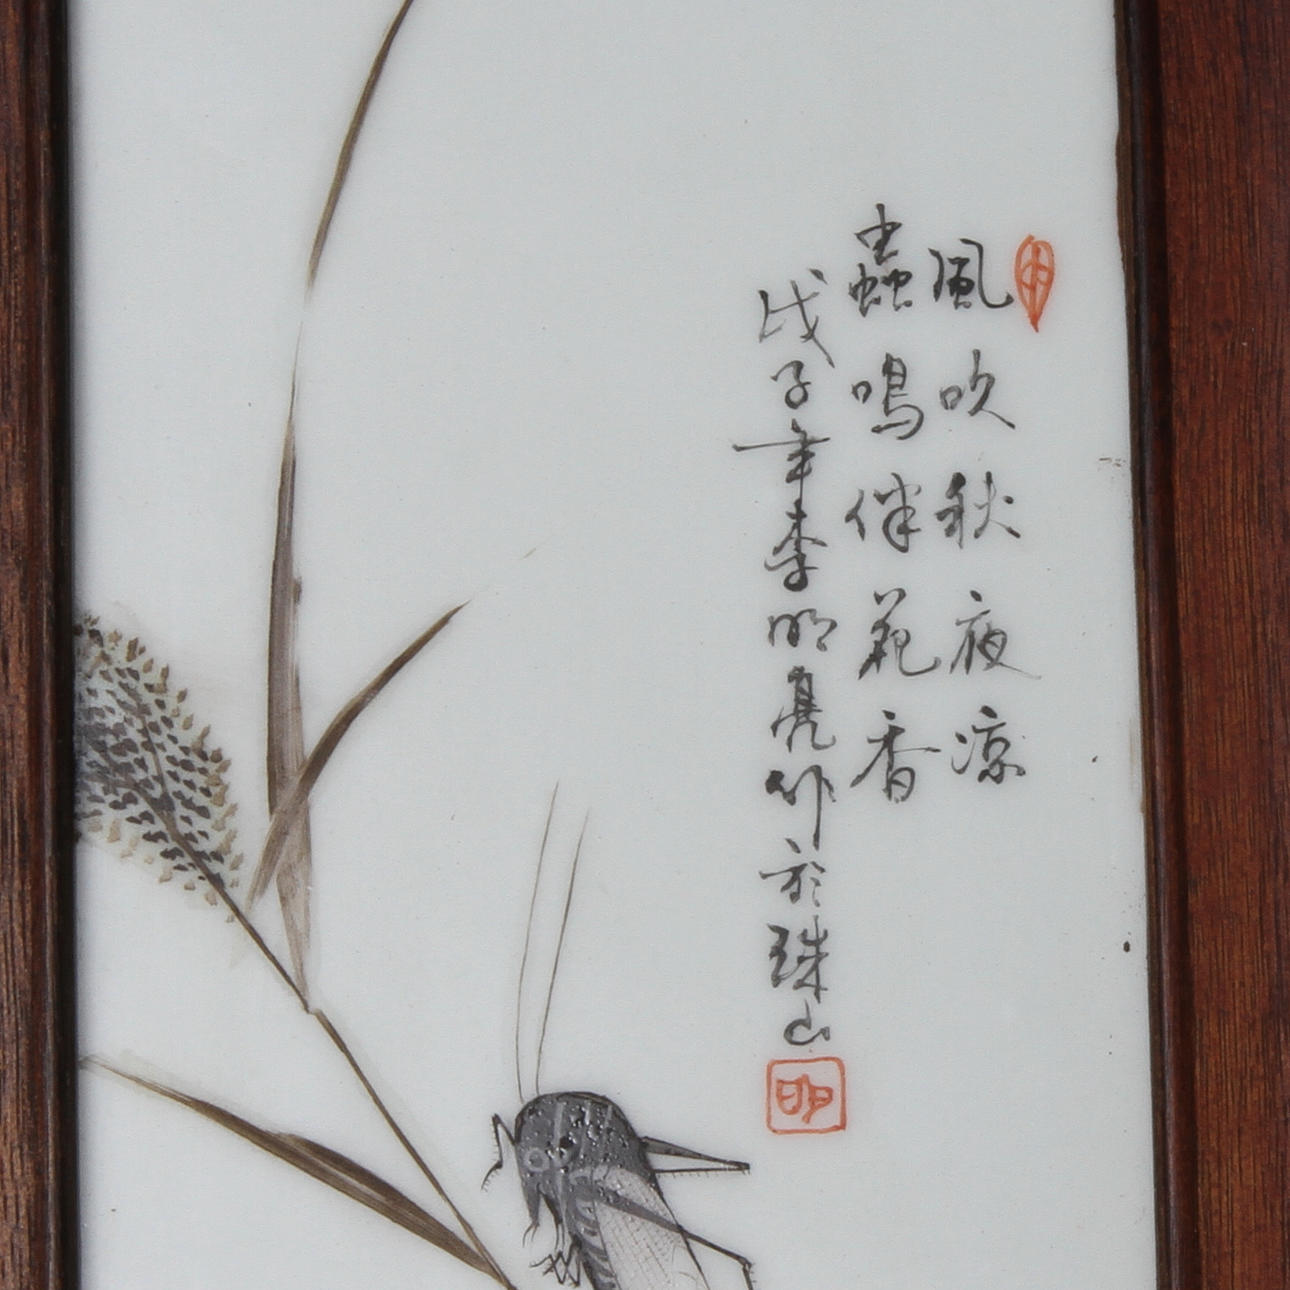 風吹秋夜凉
蟲鳴伴花香
戊子年李明亮作於珠山
明